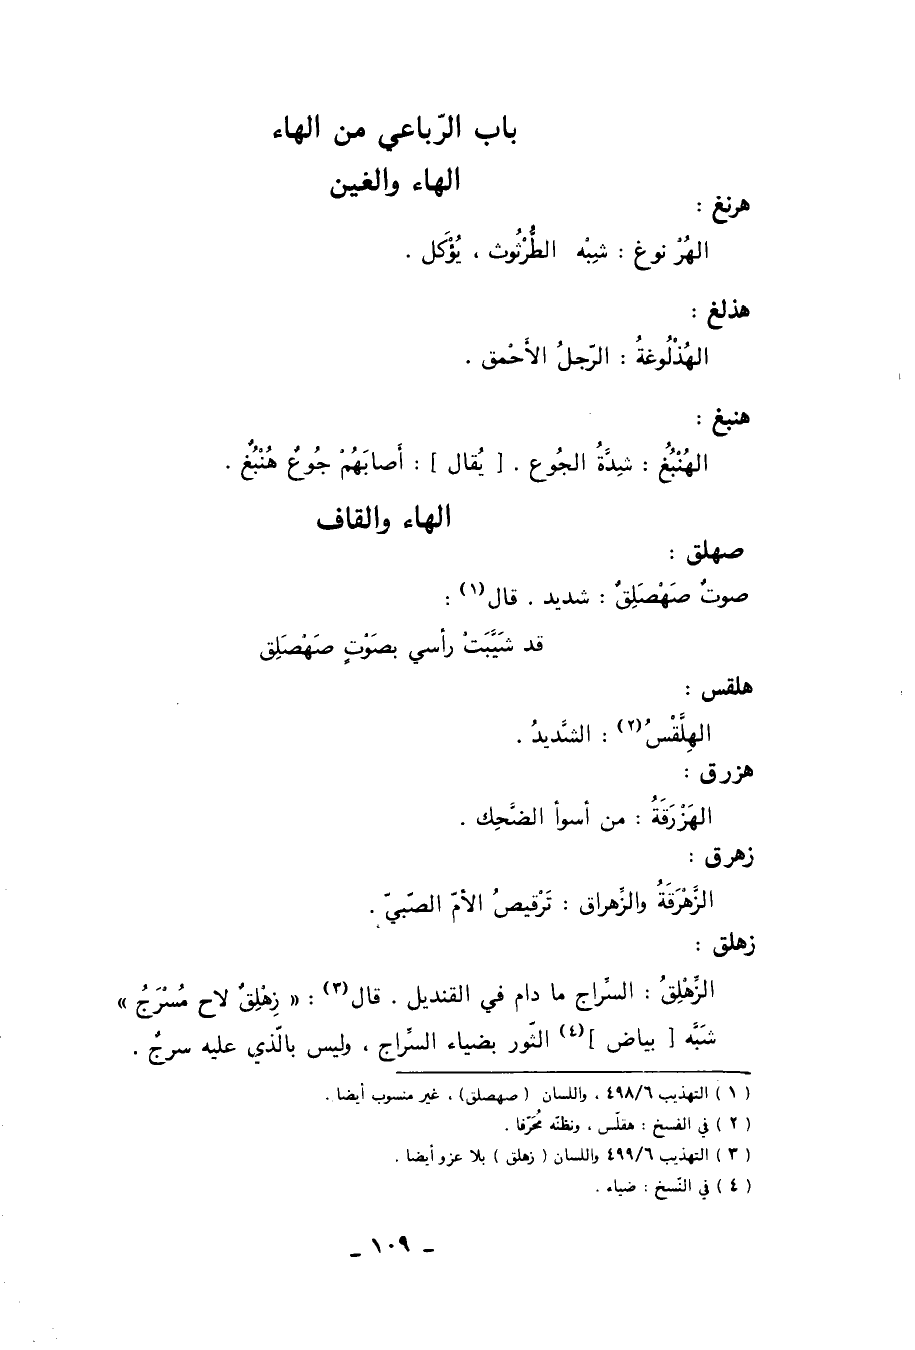 باب الرّباعي من الهاء
الهاء والغين
هرنغ :
الهُرْ نوغ : شِبْه الطُّرْثُوث ، يُؤْكَل .
هذلغ :
الهُذْلُوغةُ : الرّجلُ الأَحْمق .
هنبغ :
الهُنْبُغ : شِدَّةُ الجُوع . [ يُقال ] : أَصابَهُمْ جُوعٌ هُنْبُغٌ .
الهاء والقاف
صهلق :
صوتٌ صَهْصَلِقٌ : شديد . قال(١) :
قد شَيَّبَتْ رأسي بصَوْتٍ صَهْصَلِق
هلقس :
الهِلَّقْسُ(٢) : الشَّديدُ .
هزرق :
الهَزْرَقَةُ : من أسوأ الضَّحِك .
زهرق :
الزَّهْرَقَةُ والزِّهراق : تَرْقيصُ الأمّ الصّبيّ .
زهلق :
الزِّهْلِقُ : السِّراج ما دام في القنديل . قال(٣) : « زِهْلِقٌ لاح مُسْرَجُ »
شَبَّه [ بياض ](٤) الثّور بضياء السِّراج ، وليس بالّذي عليه سرجٌ .
( ١ ) التهذيب ٤٩٨/٦ ، واللسان ( صهصلق) ، غير منسوب أيضا .
( ٢ ) في الفسخ : هقلّس ، ونظنّه مُحَرّفا .
( ٣ ) التهذيب ٤٩٩/٦ واللسان ( زهلق ) بلا عزو أيضا .
( ٤ ) في النّسخ : ضياء .
ـ ١٠٩ ـ